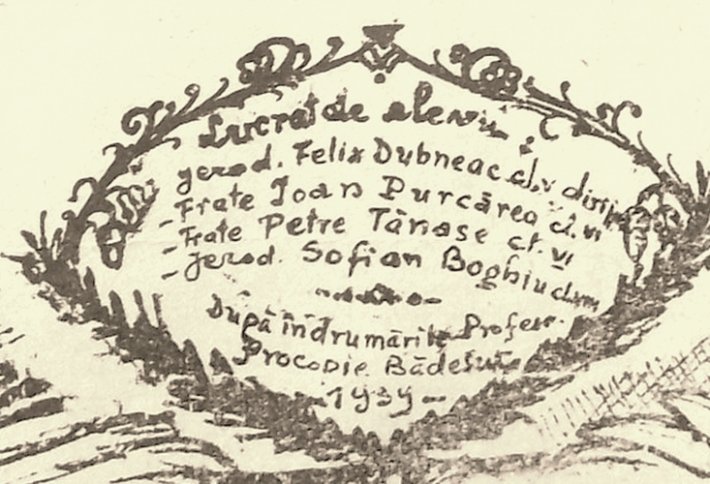 Lucrat de elevii:
jerod. Felix Dubneac cl. v dirij
-Frate Ioan Purcărea cl. VI
-Frate Petre Tănase cl. VI
-Jerod. Sofian Boghiu cl. VIII
După îndrumările Profesor.
Procopie Bădețui
-1939-